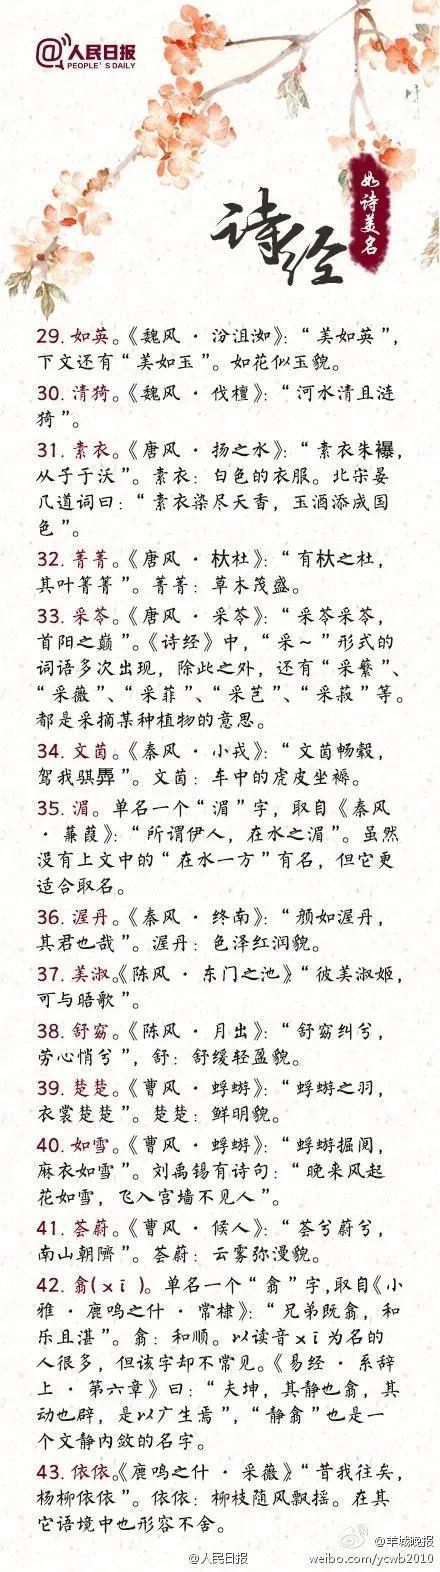 @人民日报
PEOPLE'S DAILY
诗经
如诗美名
29. 如英。《魏风·汾沮洳》：“美如英”，
下文还有“美如玉”。如花似玉貌。
30. 清猗。《魏风·伐檀》：“河水清且涟
猗”。
31. 素衣。《唐风·扬之水》：“素衣朱襮，
从子于沃”。素衣：白色的衣服。北宋晏
几道词曰：“素衣染尽天香，玉酒添成国
色”。
32. 菁菁。《唐风·杕杜》：“有杕之杜，
其叶菁菁”。菁菁：草木茂盛。
33. 采苓。《唐风·采苓》：“采苓采苓，
首阳之巅”。《诗经》中，“采～”形式的
词语多次出现，除此之外，还有“采蘩”、
“采薇”、“采菲”、“采芑”、“采菽”等。
都是采摘某种植物的意思。
34. 文茵。《秦风·小戎》：“文茵畅毂，
驾我骐馵”。文茵：车中的虎皮坐褥。
35. 湄。单名一个“湄”字，取自《秦风
·蒹葭》：“所谓伊人，在水之湄”。虽然
没有上文中的“在水一方”有名，但它更
适合取名。
36. 渥丹。《秦风·终南》：“颜如渥丹，
其君也哉”。渥丹：色泽红润貌。
37. 美淑。《陈风·东门之池》“彼美淑姬，
可与晤歌”。
38. 舒窈。《陈风·月出》：“舒窈纠兮，
劳心悄兮”，舒：舒缓轻盈貌。
39. 楚楚。《曹风·蜉蝣》：“蜉蝣之羽，
衣裳楚楚”。楚楚：鲜明貌。
40. 如雪。《曹风·蜉蝣》：“蜉蝣掘阅，
麻衣如雪”。刘禹锡有诗句：“晚来风起
花如雪，飞入宫墙不见人”。
41. 荟蔚。《曹风·候人》：“荟兮蔚兮，
南山朝隮”。荟蔚：云雾弥漫貌。
42. 翕(xī)。单名一个“翕”字，取自《小
雅·鹿鸣之什·常棣》：“兄弟既翕，和
乐且湛”。翕：和顺。以读音xī为名的
人很多，但该字却不常见。《易经·系辞
上·第六章》曰：“夫坤，其静也翕，其
动也辟，是以广生焉”，“静翕”也是一
个文静内敛的名字。
43. 依依。《鹿鸣之什·采薇》“昔我往矣，
杨柳依依”。依依：柳枝随风飘摇。在其
它语境中也形容不舍。
@人民日报
@羊城晚报
weibo.com/ycwb2010